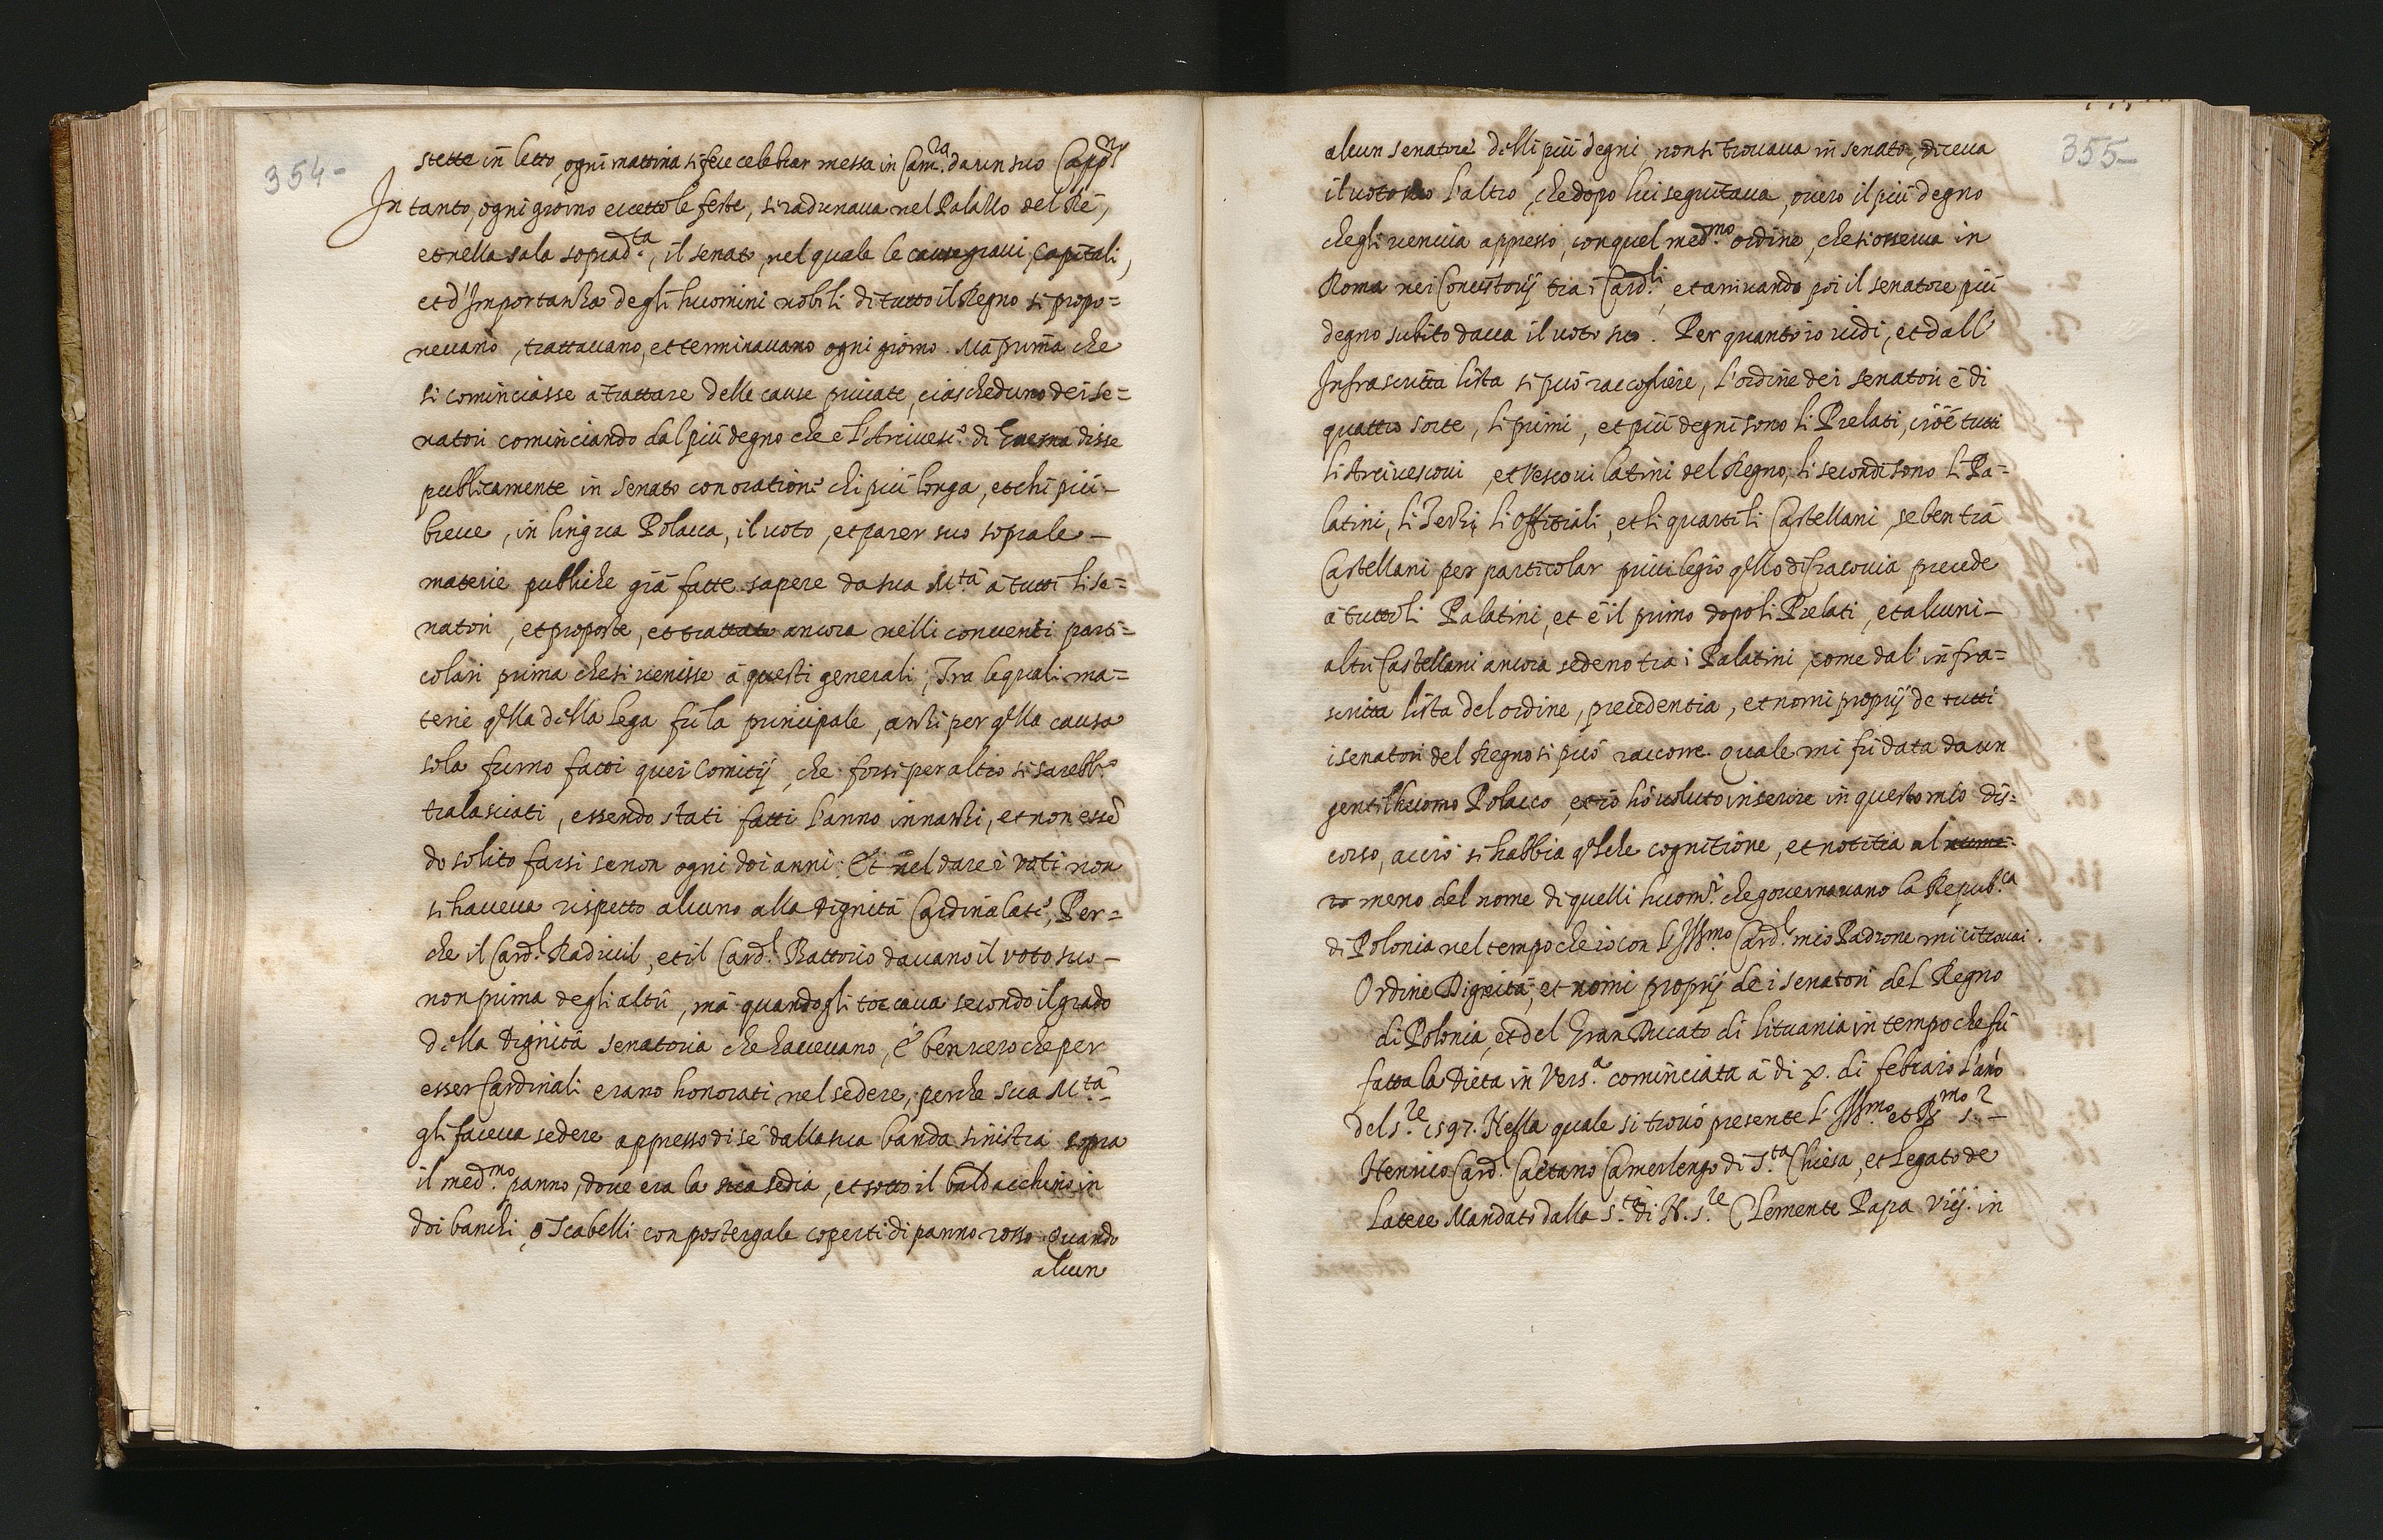 354-
stette in letto, ogni mattina si fece celebrar messa in Cam.ra da un suo Capp.no
In tanto, ogni giorno eccetto le feste, si radunaua nel Palazzo del Rè,
et nella sala soprad.ta, il senato, nel quale le cause graui, Capitali,
et d'Importanza degli huomini nobili di tutto il Regno si propo=
neuano, trattauano, et terminauano ogni giorno. Mà prima che
si cominciasse à trattare delle cause priuate, ciascheduno dei se=
natori cominciando dal più degno che è l'Arciuesc.o di Gnesna disse
publicamente in Senato con oratione chi più longa, et chi più-
breue, in lingua Polacca, il uoto, et parer suo sopra le-
materie publiche già fatte sapere da sua M.tà à tutti li se=
natori, et proposte, et trattate ancora nelli conuenti parti=
colari prima che si uenisse à questi generali; Tra le quali ma=
terie q.lla della lega fù la principale, anzi per q.lla causa
sola furno fatti quei Comitij, che forsi per altro si sarebb.o
tralasciati, essendo stati fatti l'anno innanzi, et non essẽ
do solito farsi se non ogni doi anni. Et nel dare i voti non
si haueua rispetto alcuno alla dignità Cardinalatia, Per=
che il Card.l Radiuil, et il Card.l Battorio dauano il voto suo-
non prima degli altri, mà quando gli toccaua secondo il grado
della dignità senatoria che haueuano, è ben uero che per
esser Cardinali erano honorati nel sedere, perche sua M.tà-
gli faceua sedere appresso di sè dalla sua banda sinistra sopra
il med.mo panno, doue era la sua sedia, et sotto il baldacchino in
doi banchi, ò scabelli con postergale coperti di panno rosso. Quando
alcun
355-
alcun senatore delli più degni, non si trouaua in senato, diceua
il uoto suo l'altro, che dopo lui seguitaua, ouero il più degno
che gli ueniua appresso, con quel med.mo ordine, che si osserua in
Roma nei Concistorij trà i Card.li, et arriuando poi il senatore più
degno subito daua il uoto suo. Per quanto io uidi, et dall'
Infrascritta lista si può raccogliere, l'ordine dei senatori è di
quattro sorte, li primi, et più degni sono li Prelati, cioè tutti
li Arciuescoui, et Vescoui latini del Regno, li secondi sono li Pa=
latini, li Terzi, li Offitiali, et li quarti li Castellani, se ben trà
Castellani per particolar priuilegio q.llo di Cracouia precede
à tutti li Palatini, et è il primo dopo li Prelati, et alcuni-
altri Castellani ancora sedeno trà i Palatini, come dal' infra=
scritta lista del ordine, precedentia, et nomi proprij de tutti
i senatori del Regno si può raccorre. quale mi fù data da un
gentilhuomo Polacco, et io hò uoluto inserire in questo mio dis=
corso, acciò si habbia q.lche cognitione, et notitia al nume=
ro meno del nome di quelli huom.i che gouernauano la Repub.ca
di Polonia nel tempo che io con l'Ill.mo Card.l mio Padrone mi ci trouai.
Ordine Dignità, et nomi proprij de i senatori del Regno
di Polonia, et del Gran Ducato di lituania in tempo che fù
fatta la Dieta in Vers.a cominciata à di x. di febraro l'añõ
del S.re 1597. Nella quale si trouò presente l'Ill.mo et R.mo S.r-
Henrico Card.l Caetano Camerlengo di S.ta Chiesa, et Legato de
Latere Mandato dalla S.tà di N. S.re Clemente Papa Viij. in